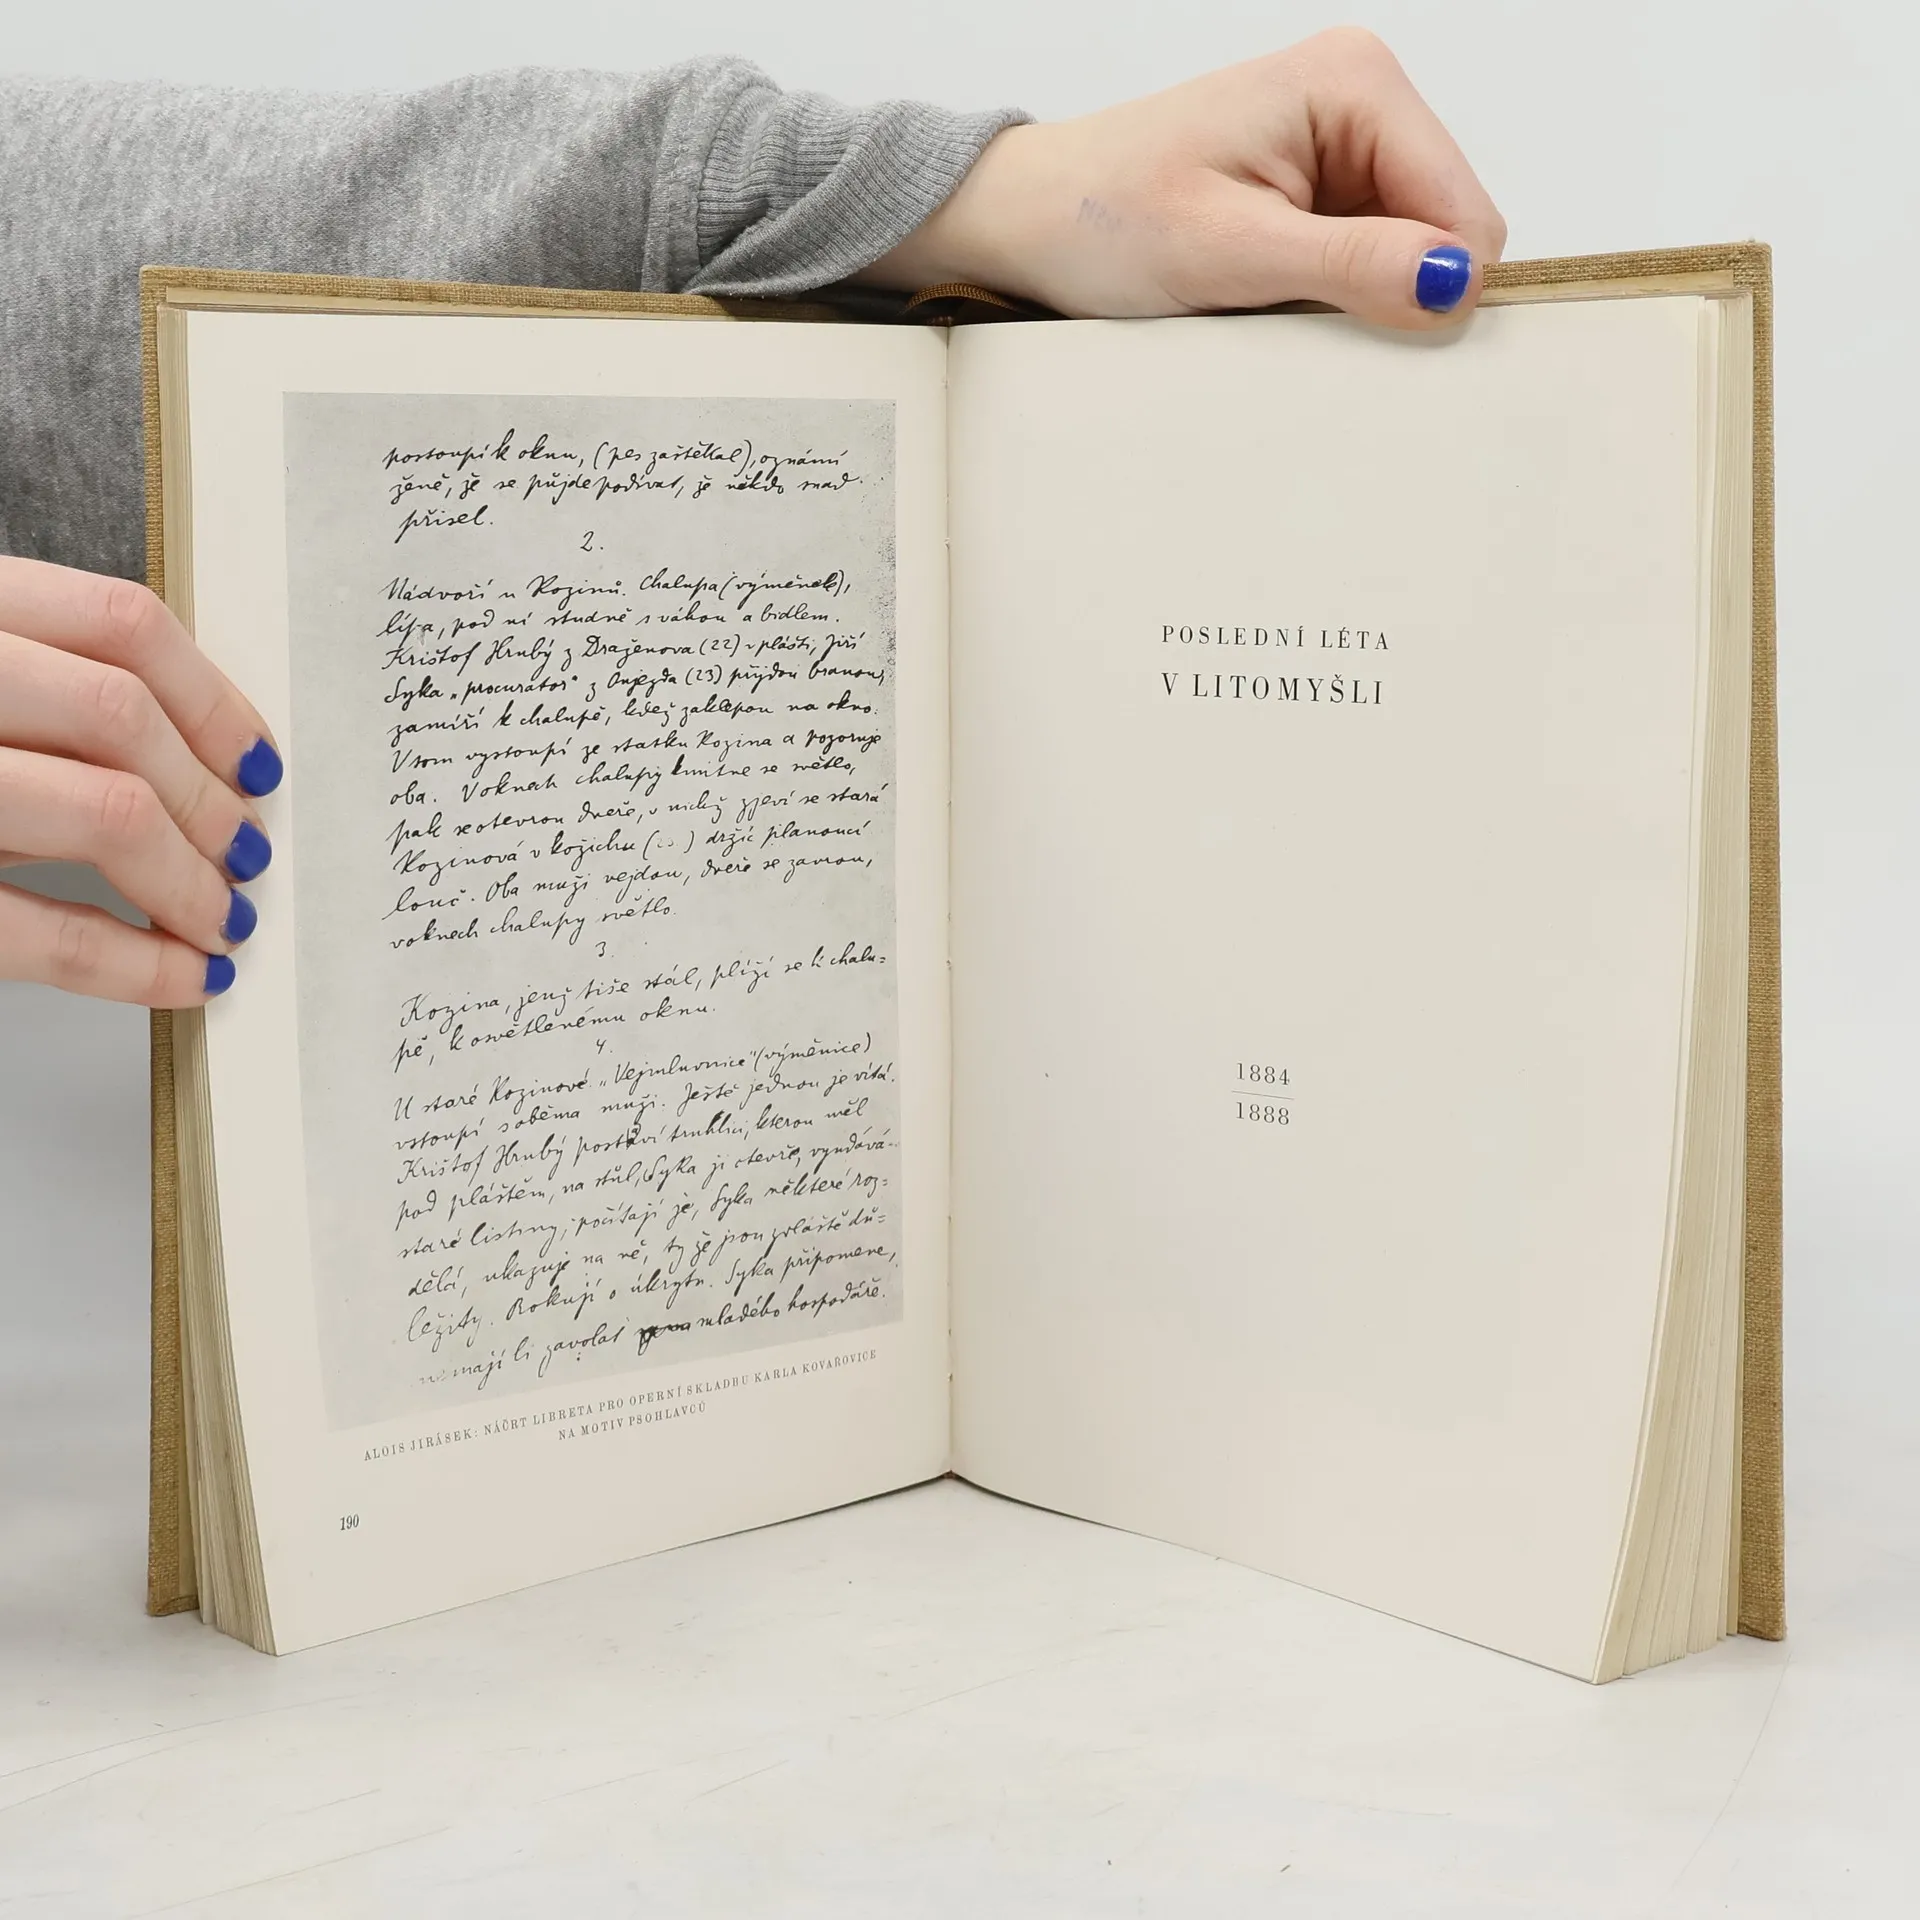 postoupí k oknu, (pes zaštěkal), oznámí
ženě, že se půjde podívat, že někdo snad
přisel.
2.
Nádvoří u Kozinů. Chalupa (výměnek),
lípa, pod ní studně s váhou a bidlem.
Krištof Hrubý z Draženova (22) v plášti, Jiří
Syka „procurator" z Oujezda (23) přijdou branou,
zamíří k chalupě, kdež zaklepou na okno.
V tom vystoupí ze statku Kozina a pozoruje
oba. V oknech chalupy kmitne se světlo,
pak se otevrou dveře, v nichž zjeví se stará
Kozinová v kožichu ( ) držíc planoucí
louč. Oba muži vejdou, dveře se zavrou,
v oknech chalupy světlo.
3.
Kozina, jenž tiše stál, plíží se k chalu=
pě, k osvětlenému oknu.
4.
U staré Kozinové. „Vejmluvnice" (výměnice)
vstoupí s oběma muži. Ještě jednou je vítá.
Krištof Hrubý postaví truhlici, kterou měl
pod pláštěm, na stůl, Syka ji otevře, vyndává
staré listiny, počítají je, Syka některé roz=
dělá, ukazuje na ně, ty že jsou zvláště dů=
ležity. Rokují o úkrytu. Syka připomene,
nemají li zavolat mladého hospodáře.
ALOIS JIRÁSEK: NÁČRT LIBRETA PRO OPERNÍ SKLADBU KARLA KOVAŘOVICE
NA MOTIV PSOHLAVCŮ
190
POSLEDNÍ LÉTA
V LITOMYŠLI
1884
1888